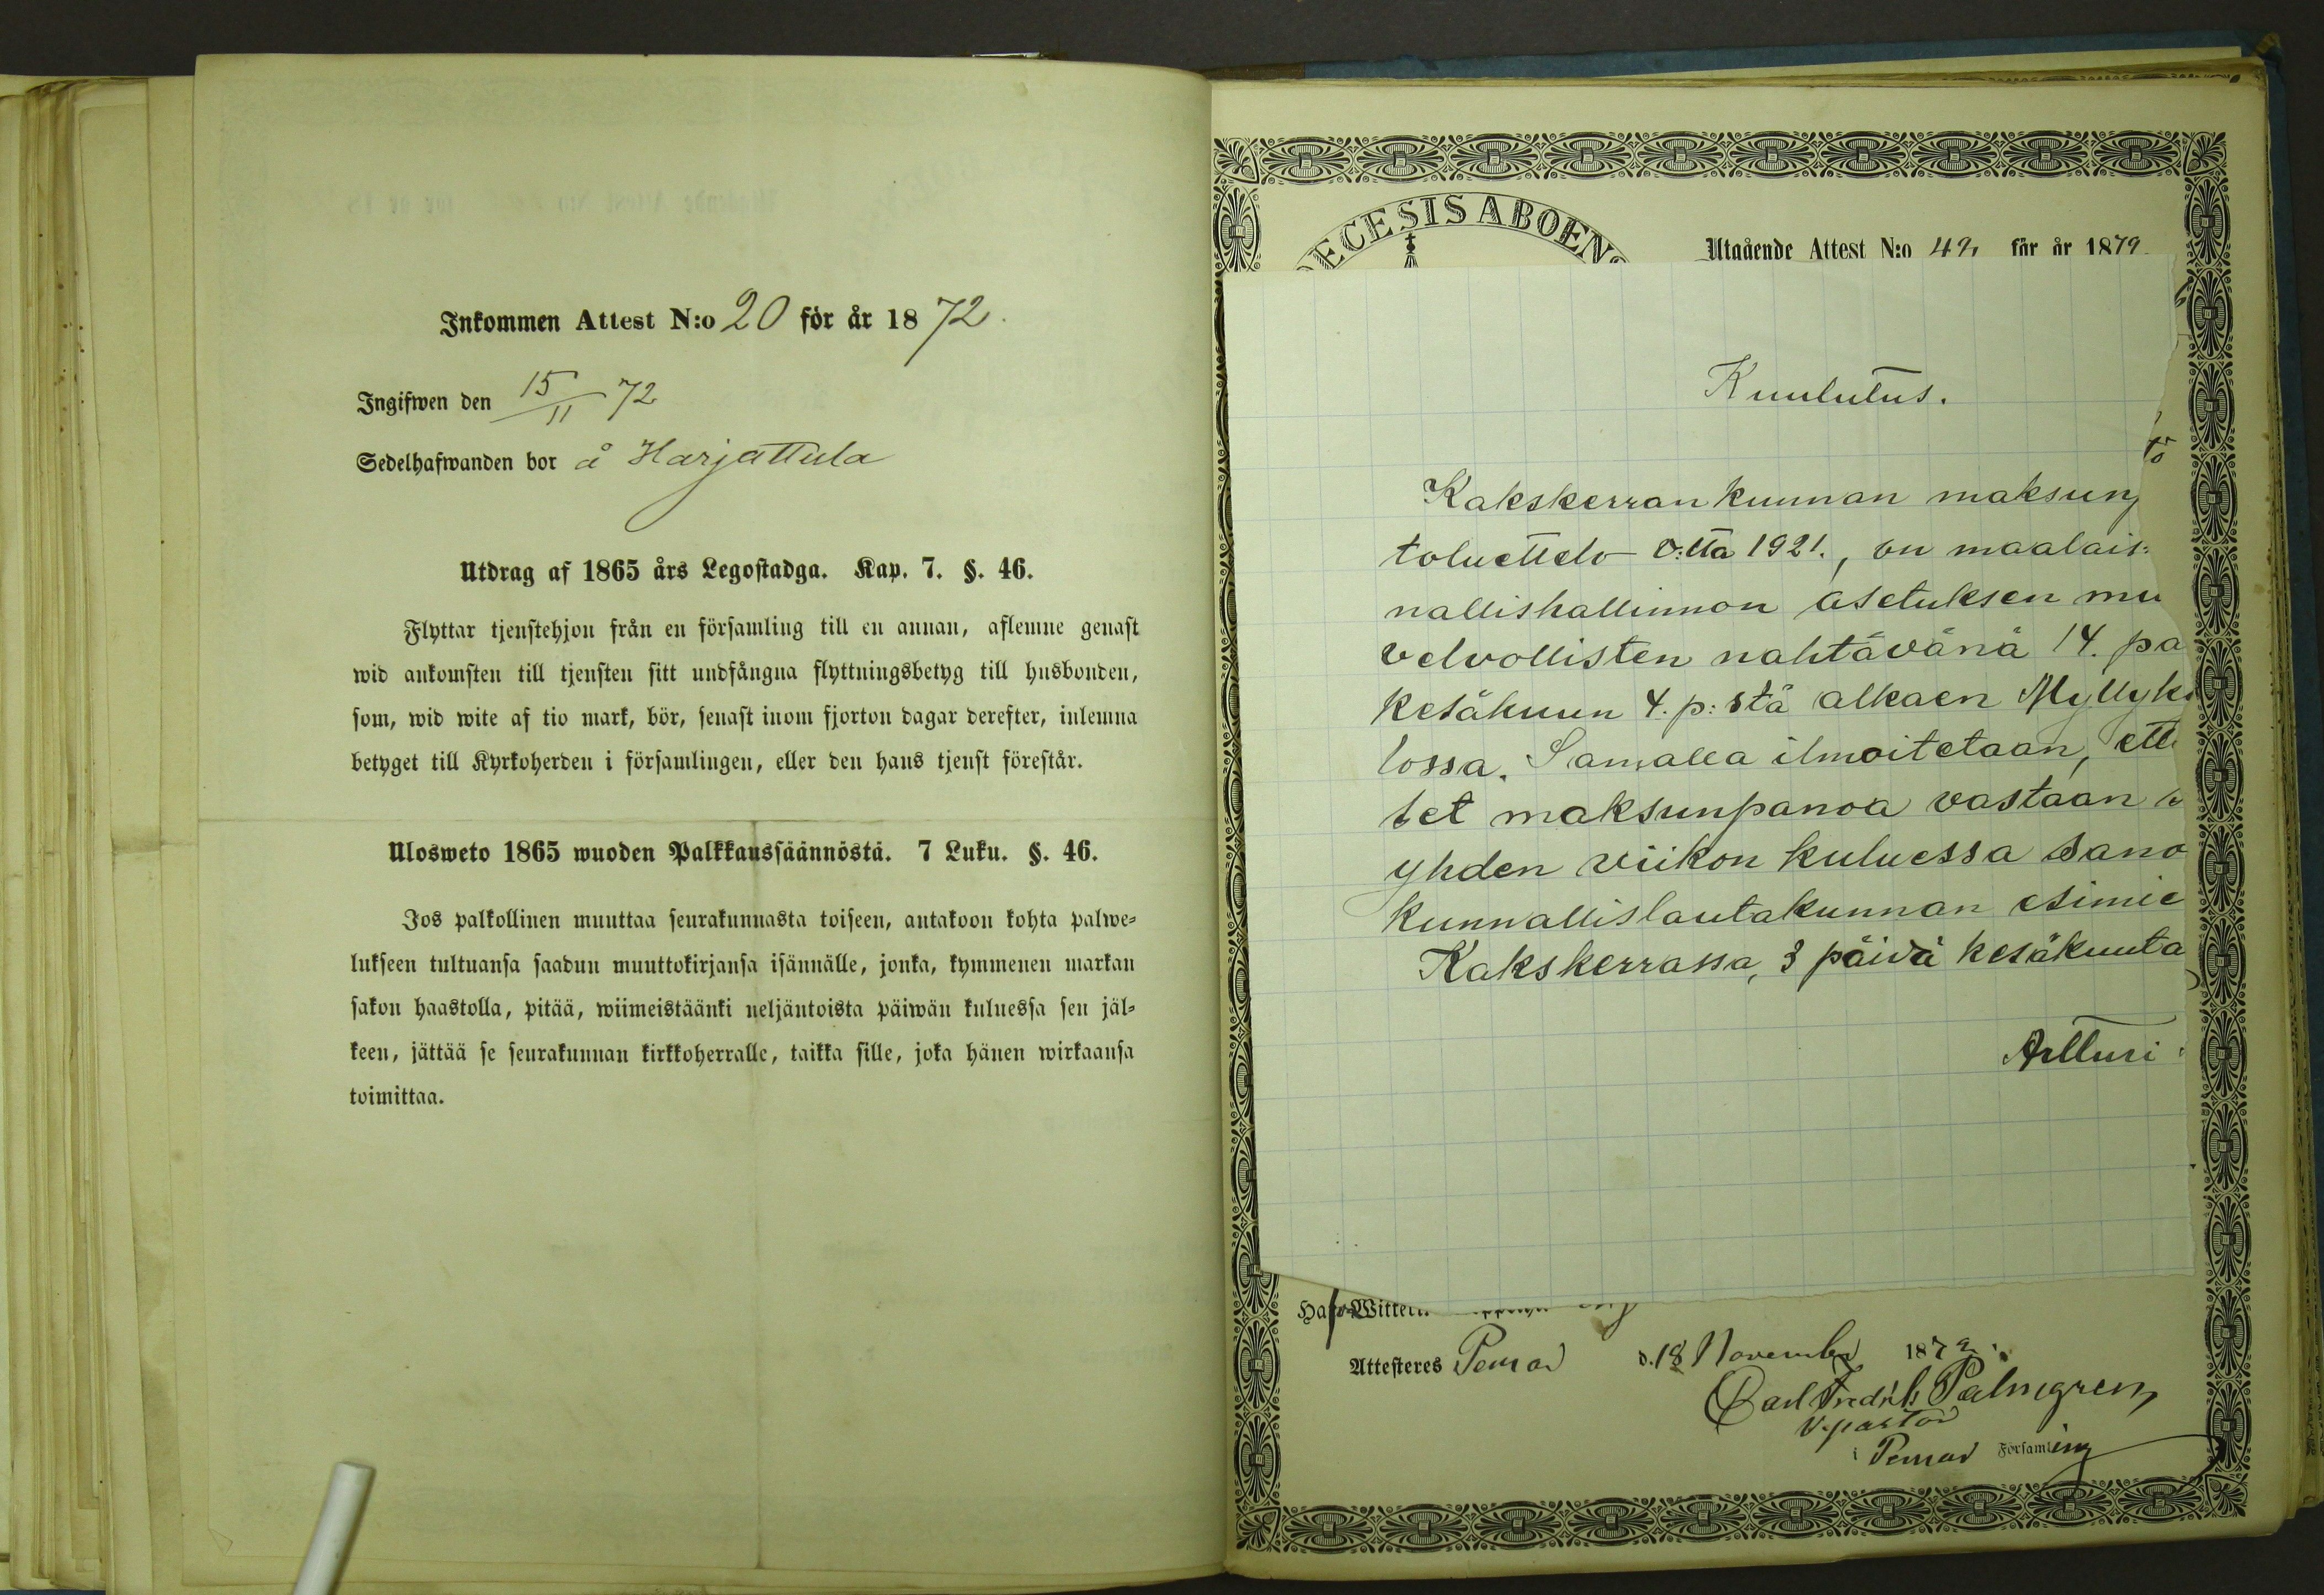 Inkommen Attest N:o 20 för år 1872.
Ingifwen den 15/11 72
Sedelhafwanden bor å Harjattula
Utdrag af 1865 års Legostadga. Kap. 7. §. 46.
Flyttar tjenstehjon från en församling till en annan, aflemne genast
wid ankomsten till tjensten sitt undfångna flyttningsbetyg till husbonden,
som, wid wite af tio mark, bör, senast inom fjorton dagar derefter, inlemna
betyget till Kyrkoherden i församlingen, eller den hans tjenst förestår.
Ulosweto 1865 wuoden Palkkaussäännöstä. 7 Luku. §. 46.
Jos palkollinen muuttaa seurakunnasta toiseen, antakoon kohta palwe-
lukseen tultuansa saadun muuttokirjansa isännälle, jonka, kymmenen markan
sakon haastolla, pitää, wiimeistäänki neljäntoista päiwän kuluessa sen jäl-
keen, jättää se seurakunnan kirkkoherralle, taikka sille, joka hänen wirkaansa
toimittaa.
ECESIS ABOEN
Utgående Attest N:o 42, för år 1872.
Kuulutus.
tö
Kakskerran kunnan maksun
toluettelo v:lta 1921., on maalais=
nallishallinnon asetuksen mu
velvollisten nahtävänä 14. pä
kesäkuun 4. p:stä alkaen Myllyk
lossa. Samalla ilmoitetaan, ett
set maksunpanoa vastaan
yhden viikon kuluessa sano
kunnallislautakunnan esimie
Kakskerrassa, 3 päivä kesäkuuta
Artturi
Hafw-Witterl.
Attesteres Pemar d. 18 November 1872.
Carl Fredrik Palmgren
V. pastor
i Pemar Församling